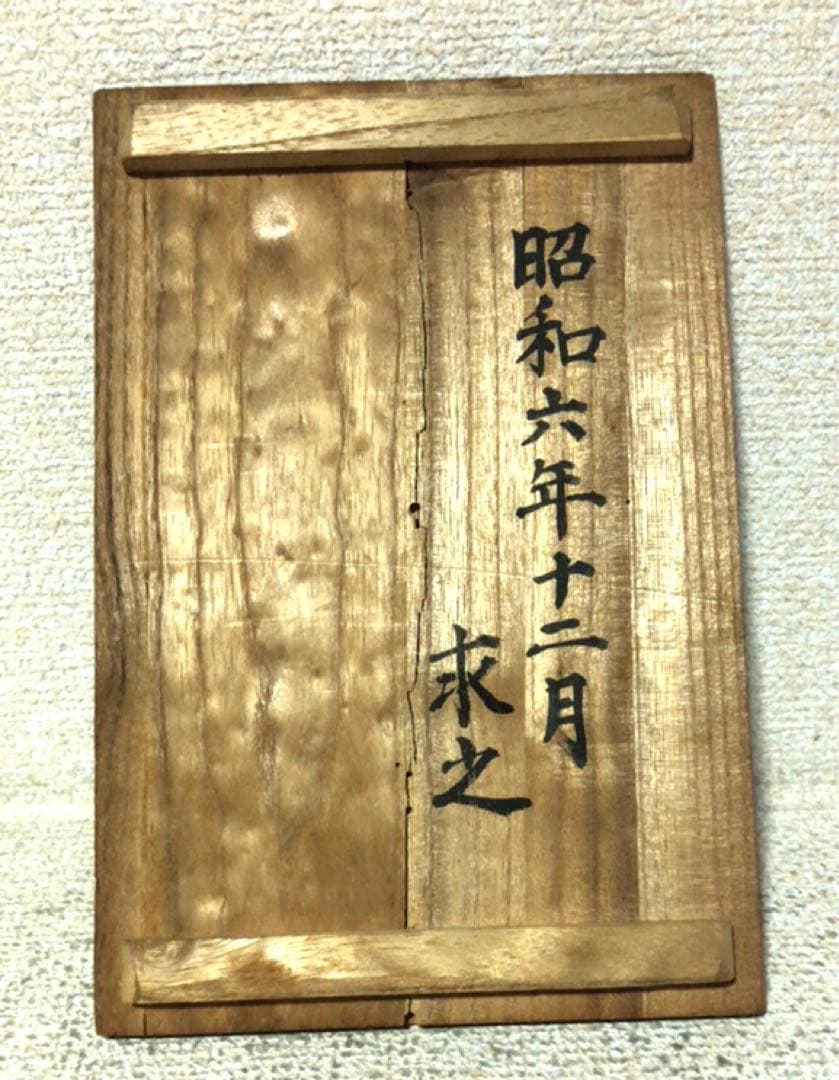 昭和六年十二月
求之